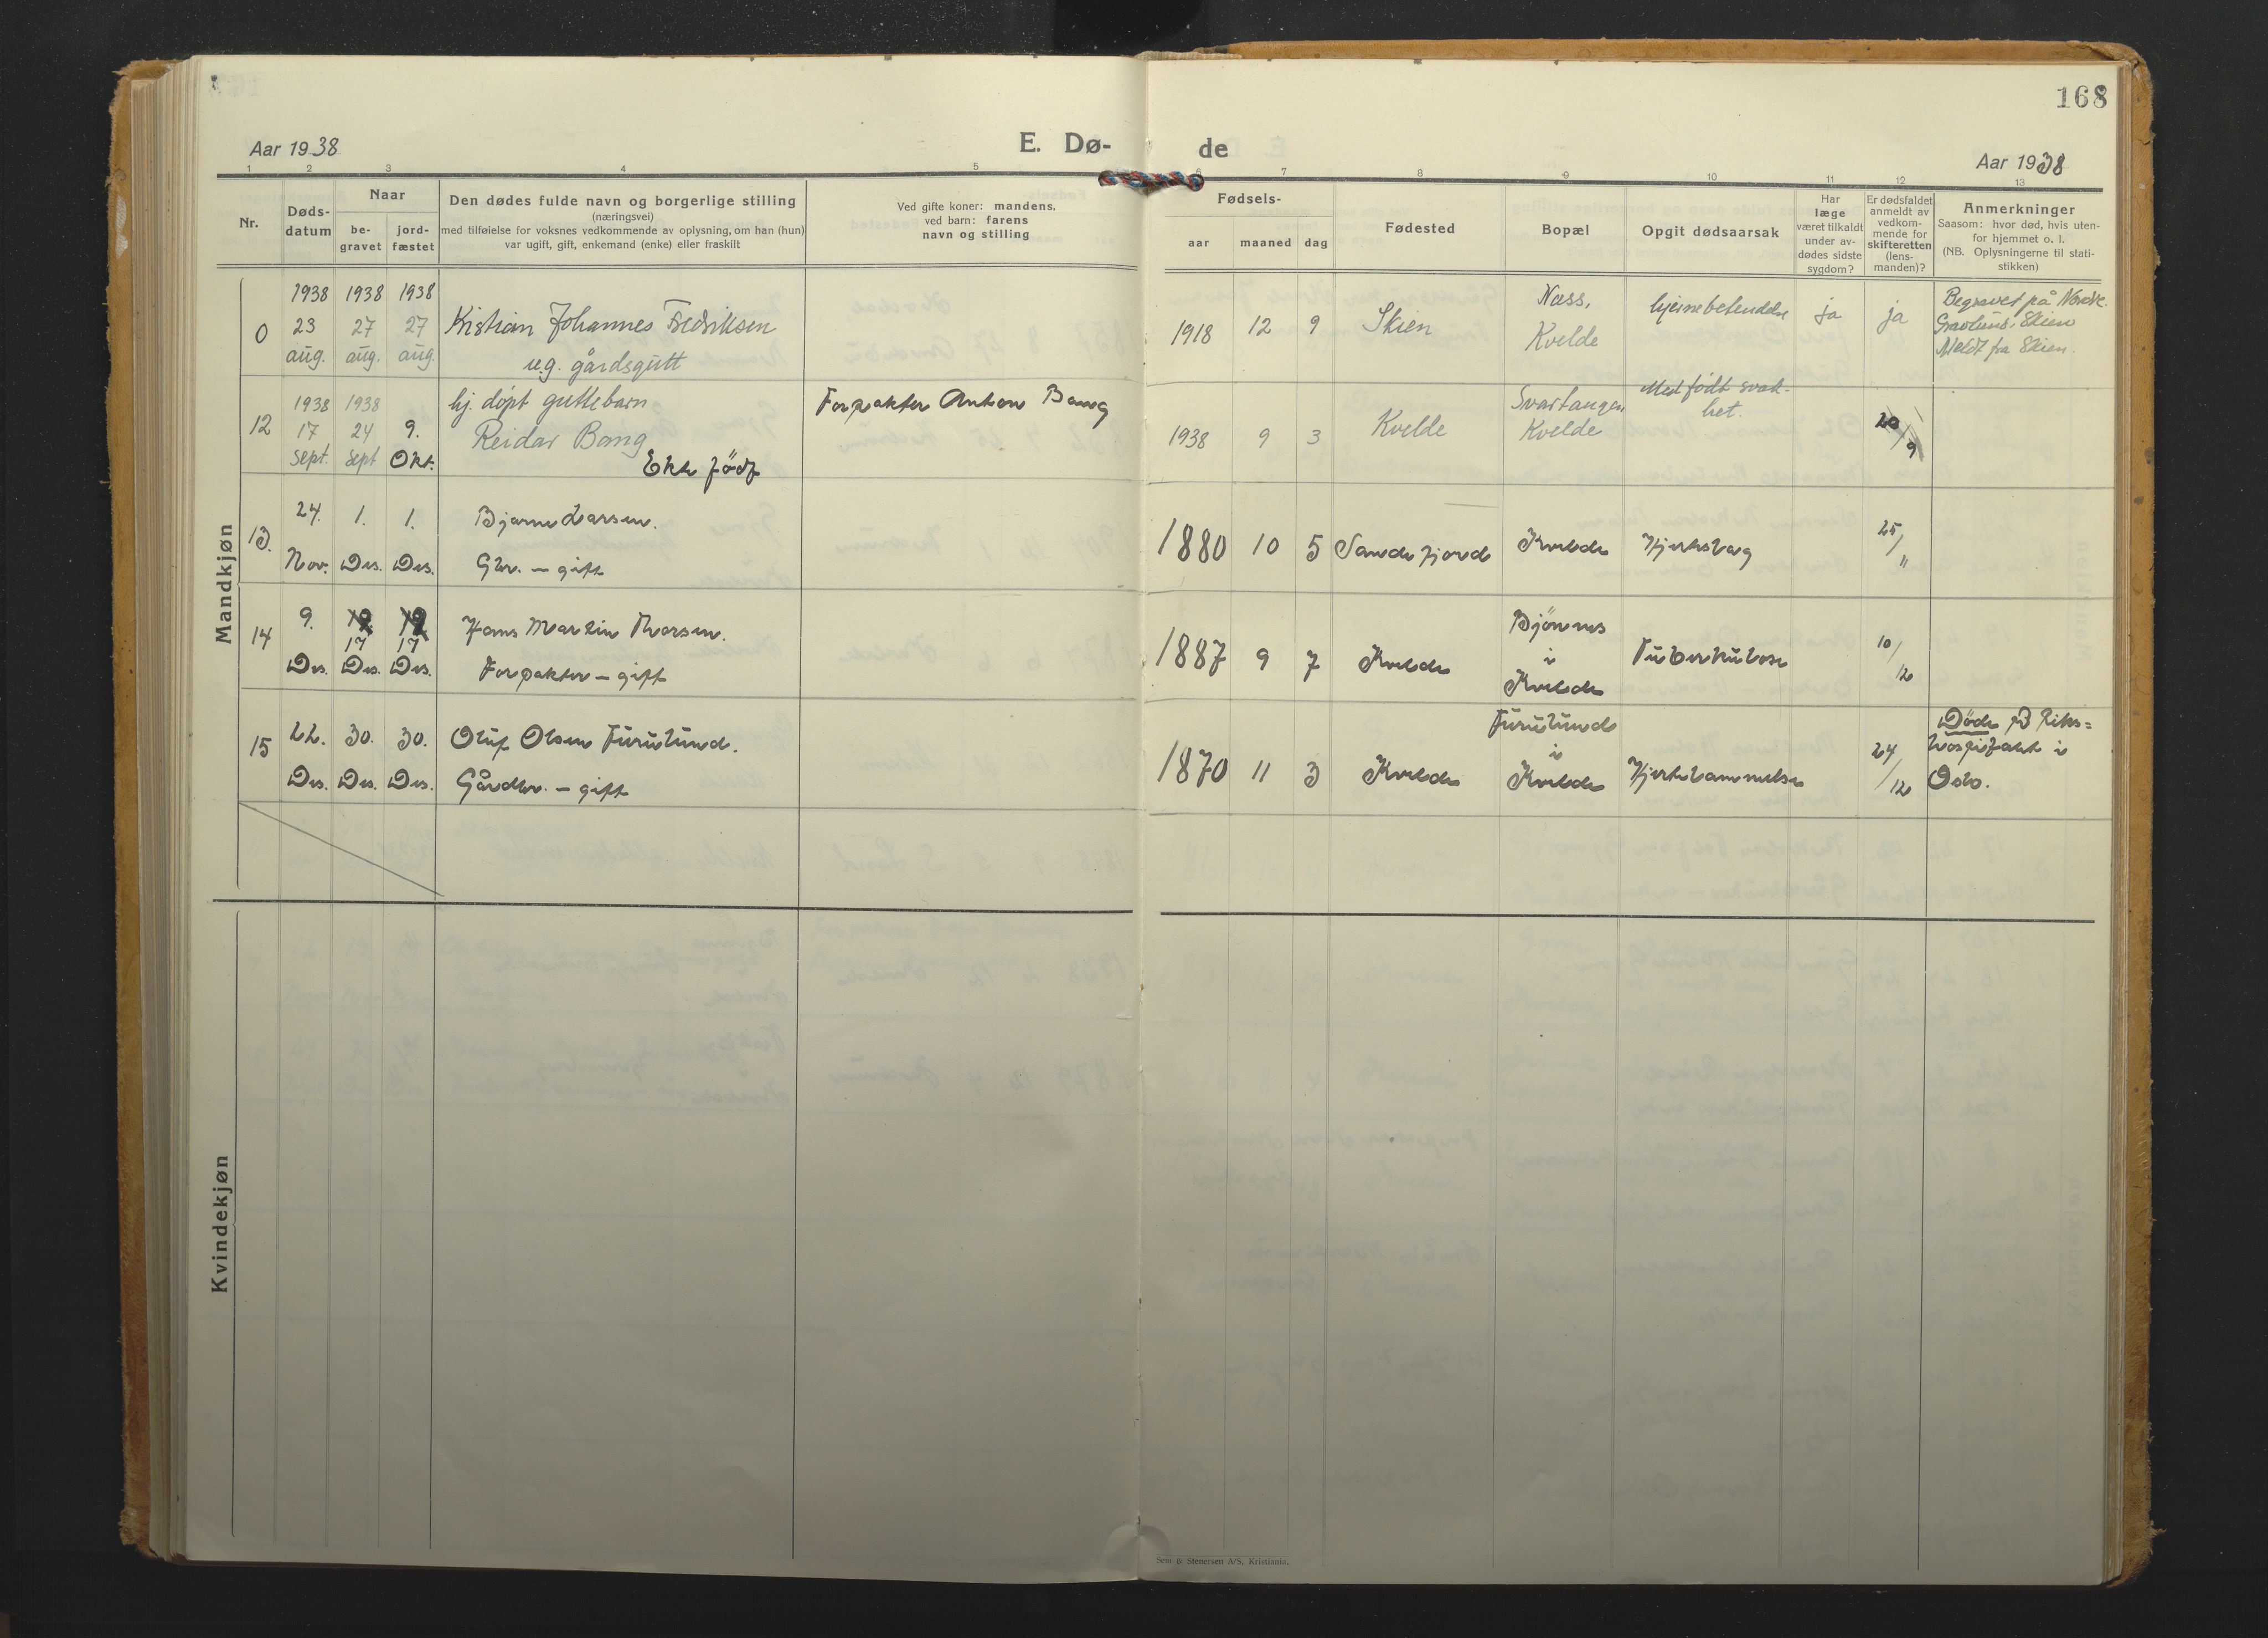 168
Aar 1938
E. Dø-
de
Aar 1938
1 2 3 4 5 6 7 8 9 10 11 12 13
Nr.
Døds-
datum
Naar
be-
gravet
jord-
fæstet
Den dødes fulde navn og borgerlige stilling
(næringsvei)
med tilføielse for voksnes vedkommende av oplysning, om han (hun)
var ugift, gift, enkemand (enke) eller fraskilt
Ved gifte koner: mandens,
ved barn: farens
navn og stilling
Fødsels-
aar maaned dag
Fødested
Bopæl
Opgit dødsaarsak
Har
læge
været tilkaldt
under av-
dødes sidste
sygdom?
Er dødsfaldet
anmeldt av
vedkom-
mende for
skifteretten
(lens-
manden)?
Anmerkninger
Saasom: hvor død, hvis uten-
for hjemmet o. l.
(NB. Oplysningerne til stati-
stikken)
Mandkjøn
0
1938
23
aug.
1938
27
aug.
1938
27
aug.
Kristian Johannes Fredriksen
ug. gårdsgutt
1918 12 9
Skien
Næss,
Kvelde
hjernebetendelse
ja
ja
Begravet på Nordre
Gravlund, Skien
Meldt fra Skien.
12
1938
17
sept.
1938
24
sept
9.
Okt.
hj. døpt guttebarn
Reidar Bang
Ekte født
Forpakter Anton Bang
1938 9 3
Kvelde
Svartangen
Kvelde
Medfødt svak-
het.
20/9
13.
24.
Nov.
1.
Des.
1.
Des.
Bjarne Larsen.
Gbr. – gift
1880 10 5
Sandefjord
Kvelde
Hjerteslag
25/"
14
9.
Des.
17
Des.
17
Des.
Hans Martin Thorsen.
Forpakter – gift
1887 9 7
Kvelde
Bjønnes
i
Kvelde
Tuberkulose
10/12
15
22.
Des.
30.
Des.
30.
Des.
Oluf Olsen Furulund.
Gårdbr. – gift
1870 11 3
Kvelde
Furulund
i
Kvelde
Hjertelammelse
24/12
Døde på Riks=
hospitalet i
Oslo.
Kvindekjøn
Sem & Stenersen A/S, Kristiania.